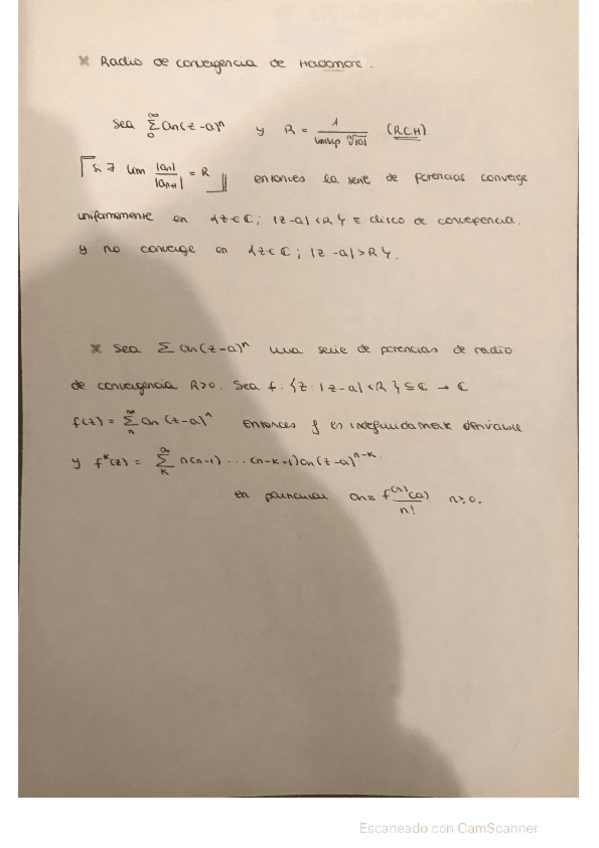 * Radio de convergencia de Hadamard.
Sea ∞∑0 an(z-a)^n y R = 1/limsup ⁿ√|a| (RCH)
si ∃ lim |an|/|an+1| = R entonces la serie de potencias converge
uniformemente en {z∈ℂ; |z-a|<R} ≡ disco de convergencia.
y no converge en {z∈ℂ; |z-a|>R}.
* Sea ∑ an(z-a)^n una serie de potencias de radio
de convergencia R>0. Sea f: {z: |z-a|<R} ⊆ ℂ → ℂ
f(z) = ∞∑n an (z-a)^n entonces f es indefinidamente derivable
y f^k(z) = ∞∑k n(n-1) ... (n-k+1)an(z-a)^n-k.
en particular an = f^(n)(a)/n! n≥0.
Escaneado con CamScanner